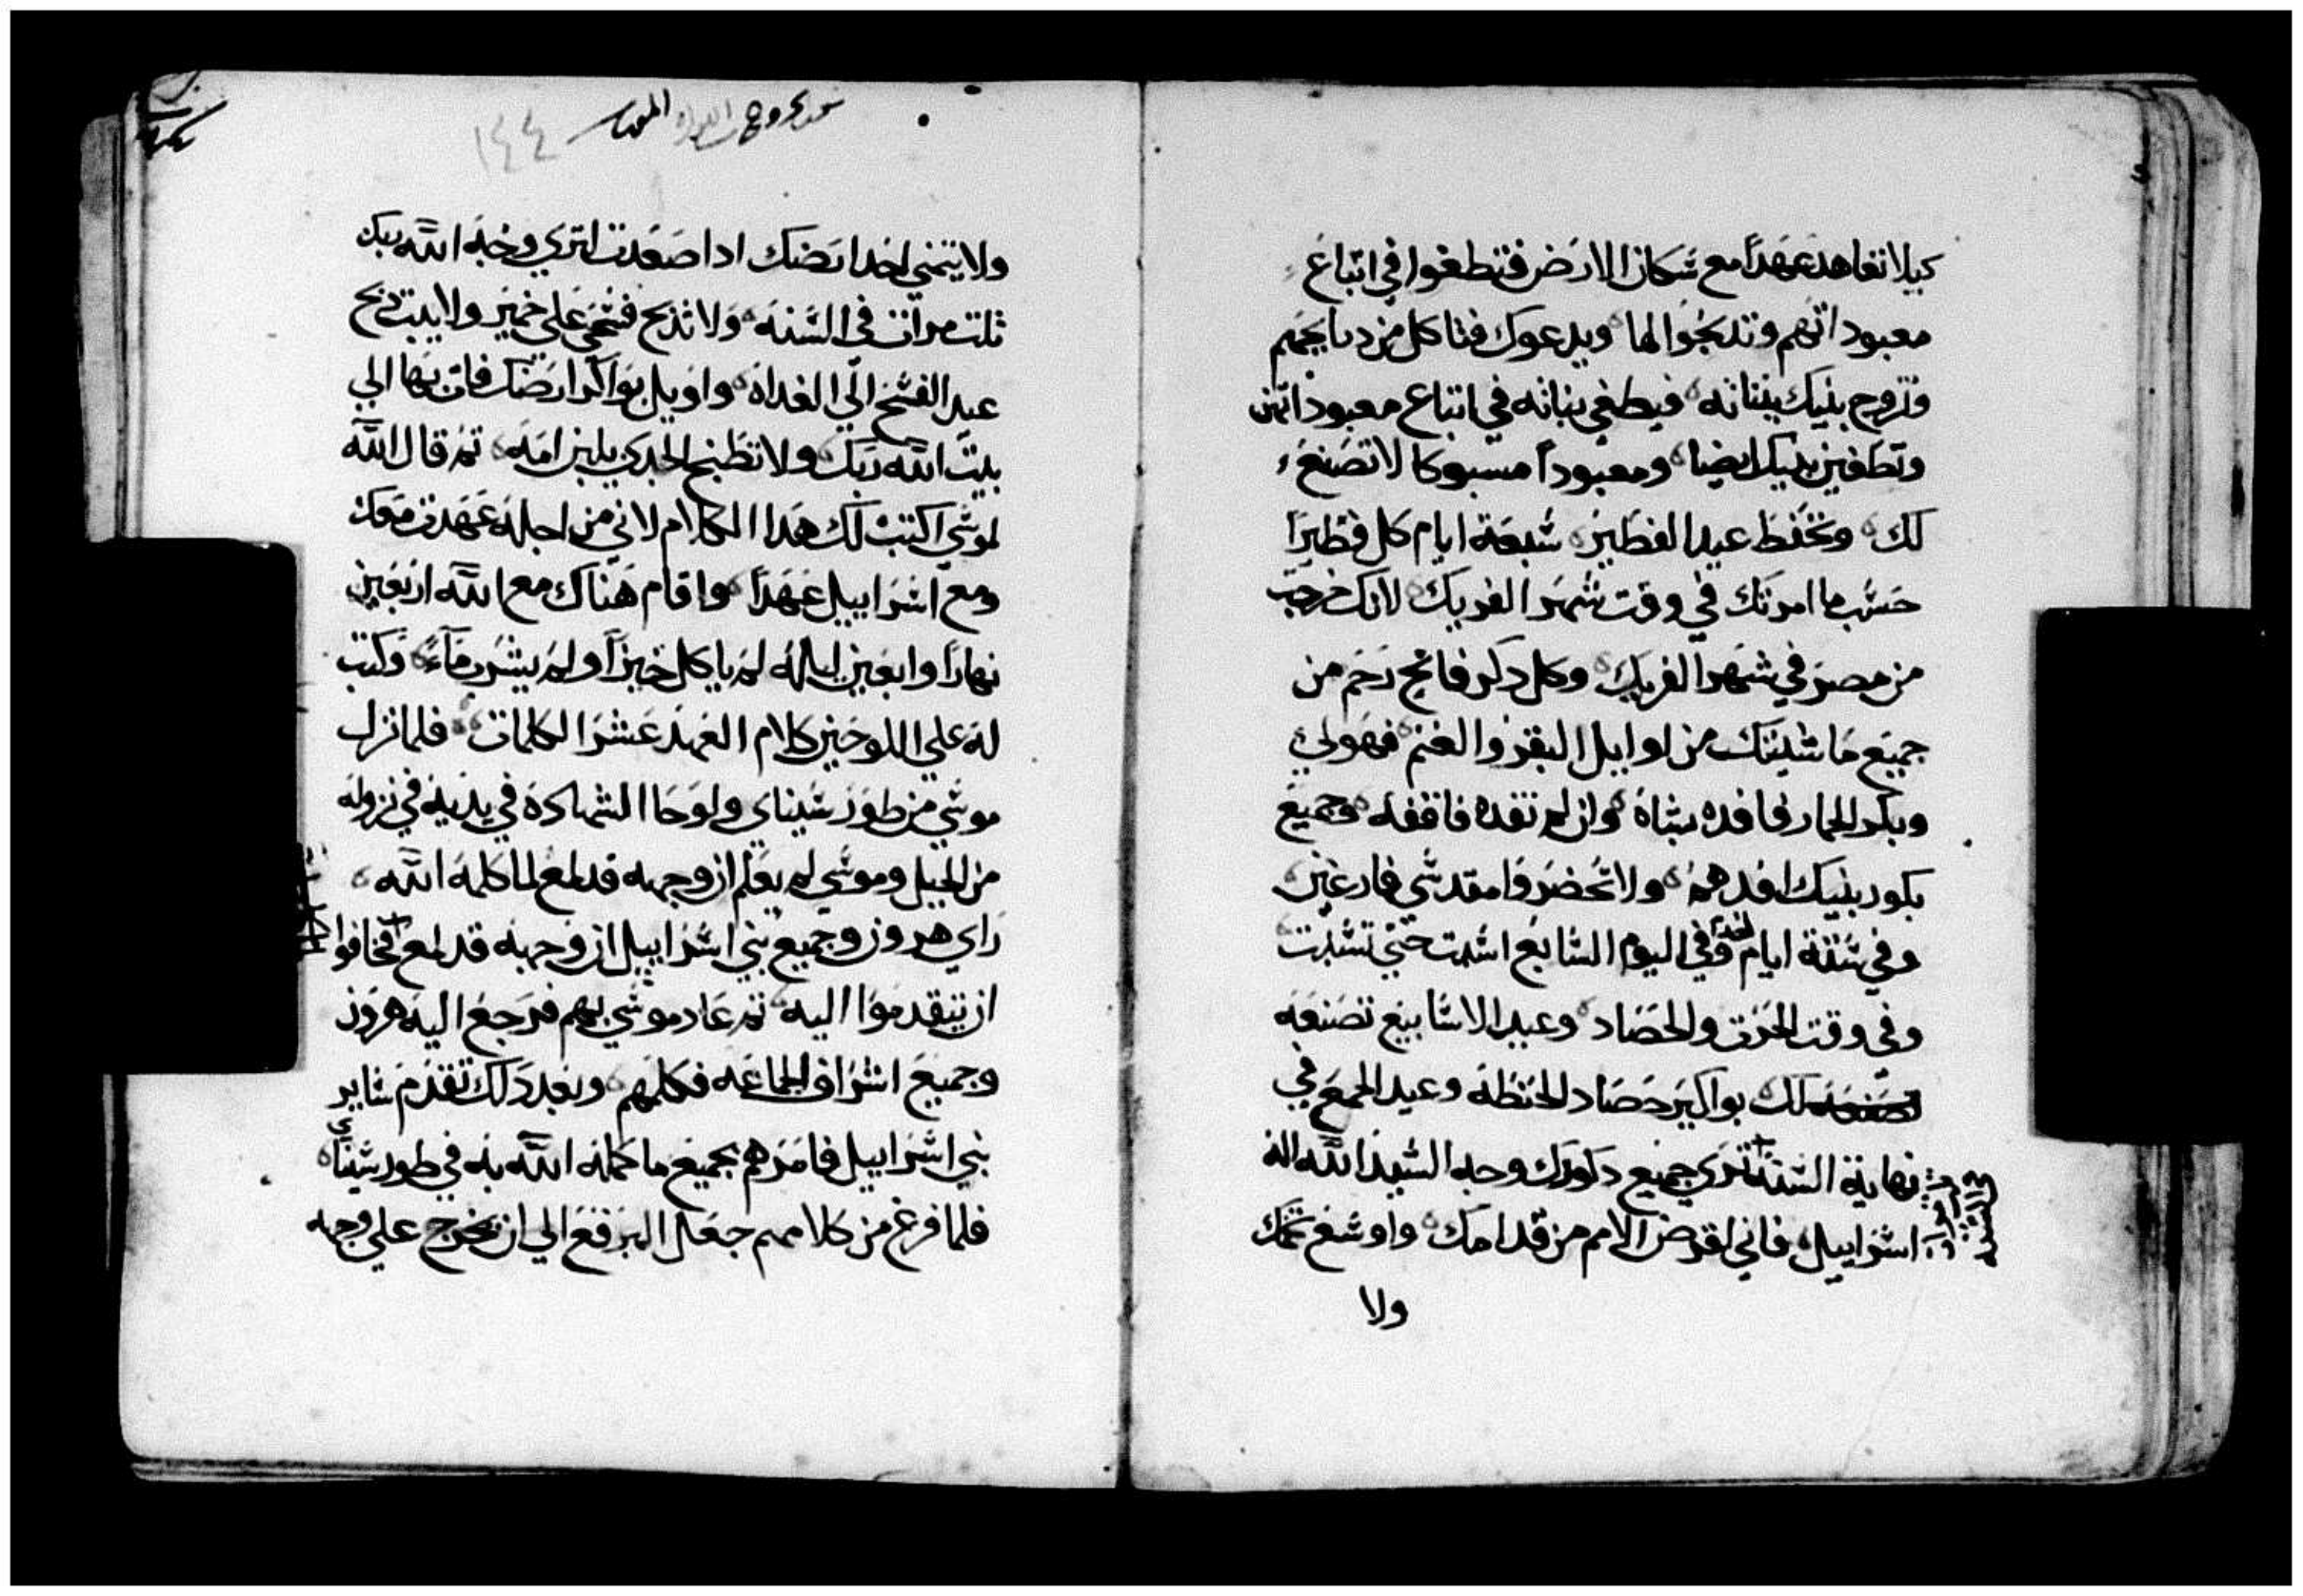 كيلا تعاهد عهداً مع سكان الارض فتطغوا في اتباع
معبوداتهم وتدبحوا لها ويدعوك فتاكل من دبايحهم
وتزوج بنيك ببناته فيطغي بناته في اتباع معبوداتهن
وتطغين بنيك ايضا ومعبوداً مسبوكا لا تصنع
لك وتحفظ عيد الفطير سبعة ايام كل فطيرا
حسب ما امرتك في وقت شهر الفريك لانك خرجت
من مصر في شهر الفريك وكل دكر فاتح رحم من
جميع ماشيتك من اوايل البقر والغنم فهو لي
وبكر الحمار فافده بشاة وان لم تفده فاقفه وجميع
بكور بنيك افدهم ولا تحضروا مقدسي فارغين
وفي ستة ايام اخدم وفي اليوم السابع اسبت حتي تسبت
وفي وقت الحرت والحصاد وعيد الاسابيع تصنعه
لك بواكير حصاد الحنطة وعيد الجمع في
نهاية السنة تري جميع دكورك وجه السيد الله اله
اسراييل فاني اقرض الامم من قدامك واوسع تخمك
ولا
١٤٤
ولا يتمني احد ارضك ادا صعدت لتري وجه الله ربك
تلت مرات في السنه ولا تدبح فسحي علي خمير ولا يبت دبح
عيد الفسح الي الغداه واوايل بواكر ارضك فات بها الي
بيت الله ربك ولا تطبخ الجدي بلبن امه تم قال الله
لموسي اكتب لك هدا الكلام لاني من اجله عهدت معك
ومع اسراييل عهداً واقام هناك مع الله اربعين
نهاراً واربعين ليله لم ياكل خبزاً ولم يشرب ماءً وكتب
له علي اللوحين كلام العهد عشر الكلمات فلما نزل
موسي من طور سيناي ولوحا الشهادة في يديه في نزوله
من الجبل وموسي لم يعلم ان وجهه قد لمع لما كلمه الله
راي هرون وجميع بني اسراييل ان وجهه قد لمع فخافوا
ان يتقدموا اليه تم عاد موسي بهم فرجع اليه هرون
وجميع اشراف الجماعه فكلمهم وبعد دلك تقدم ساير
بني اسراييل فامرهم بجميع ما كلمه الله به في طور سيناي
فلما فرغ من كلامهم جعل البرقع الي ان يخرج علي وجهه